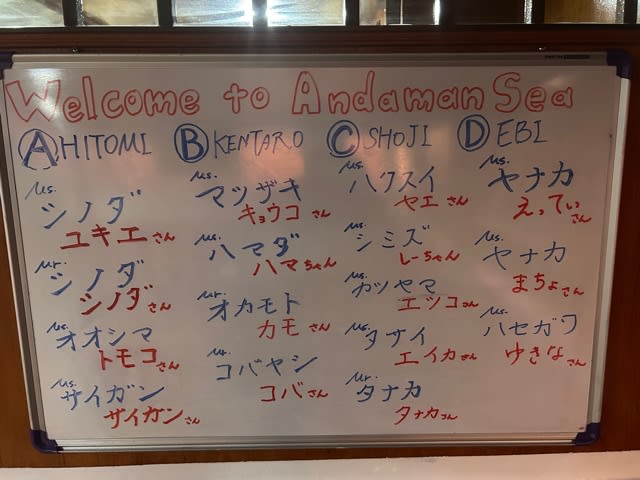 Welcome to Andaman Sea
A HITOMI
Ms. シノダ
ユキエさん
Mr. シノダ
シノダさん
Ms. オオシマ
トモコさん
Ms. サイガン
サイガンさん
B KENTARO
Ms. マツザキ
キョウコさん
Ms. ハマダ
ハマちゃん
Mr. オカモト
カモさん
Mr. コバヤシ
コバさん
C SHOJI
Ms. ハクスイ
ヤエさん
Ms. シミズ
しーちゃん
Ms. カツヤマ
エツコさん
Ms. タサイ
エイカさん
Mr. タナカ
タナカさん
D EBI
Ms. ヤナカ
えってぃさん
Ms. ヤナカ
まちょさん
Ms. ハセガワ
ゆきなさん